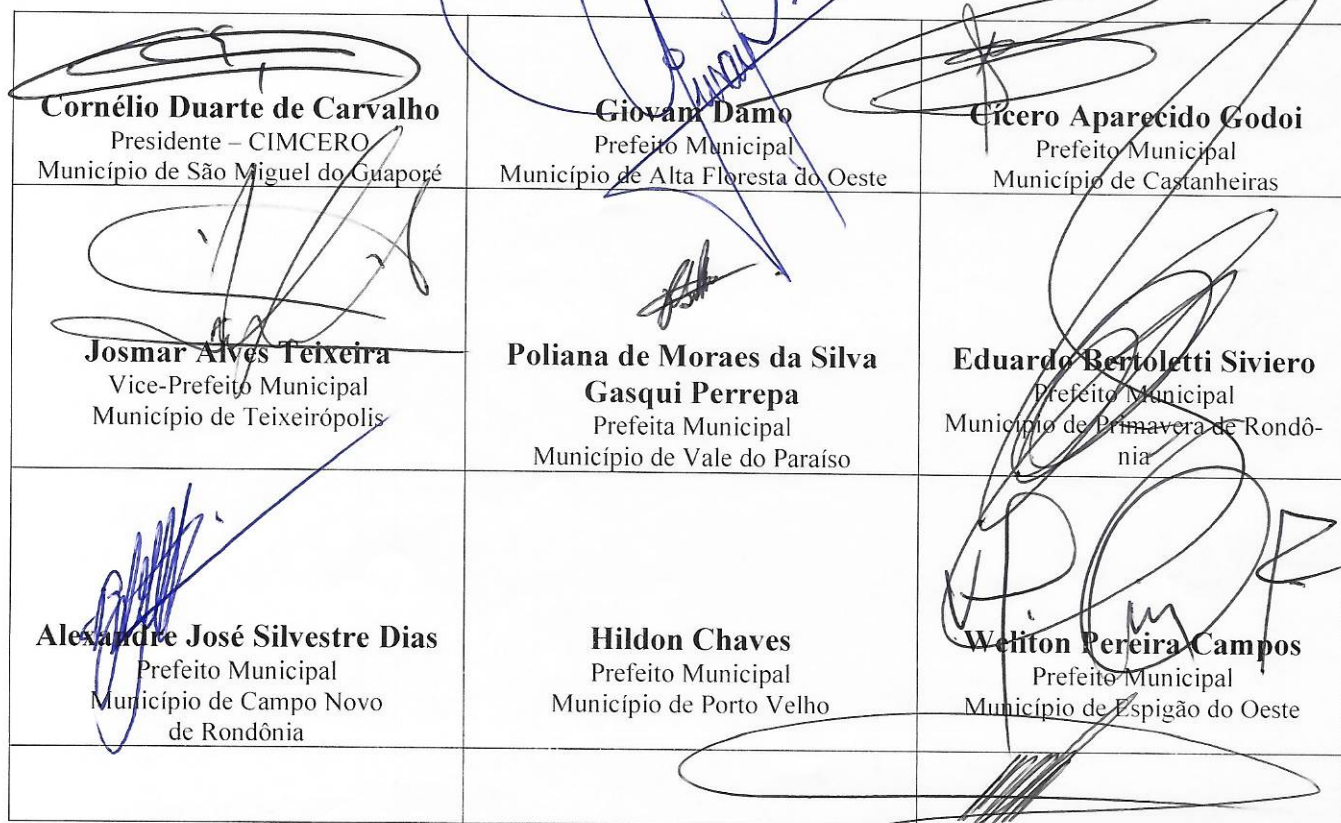 Cornélio Duarte de Carvalho
Presidente – CIMCERO
Município de São Miguel do Guaporé
Giovam Damo
Prefeito Municipal
Município de Alta Floresta do Oeste
Cícero Aparecido Godoi
Prefeito Municipal
Município de Castanheiras
Josmar Alves Teixeira
Vice-Prefeito Municipal
Município de Teixeirópolis
Poliana de Moraes da Silva
Gasqui Perrepa
Prefeita Municipal
Município de Vale do Paraíso
Eduardo Bertoletti Siviero
Prefeito Municipal
Município de Primavera de Rondô-
nia
Alexandre José Silvestre Dias
Prefeito Municipal
Município de Campo Novo
de Rondônia
Hildon Chaves
Prefeito Municipal
Município de Porto Velho
Weliton Pereira Campos
Prefeito Municipal
Município de Espigão do Oeste